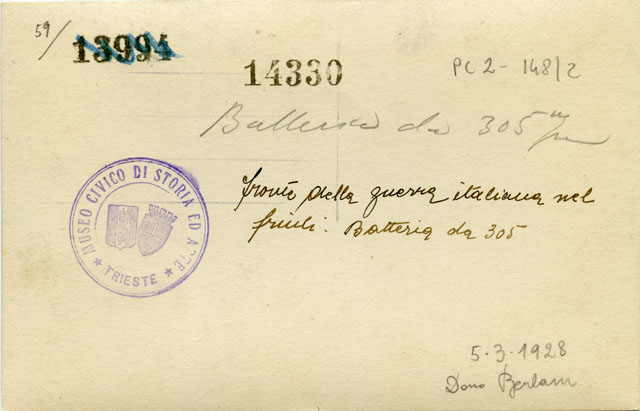 59/
13994
14330
PC 2 - 148/2
Batteria da 305 m/m
MUSEO CIVICO DI STORIA ED ARTE
★ TRIESTE ★
fronte della guerra italiana nel
friuli. Batteria da 305
5.3.1928
Dono Berlam